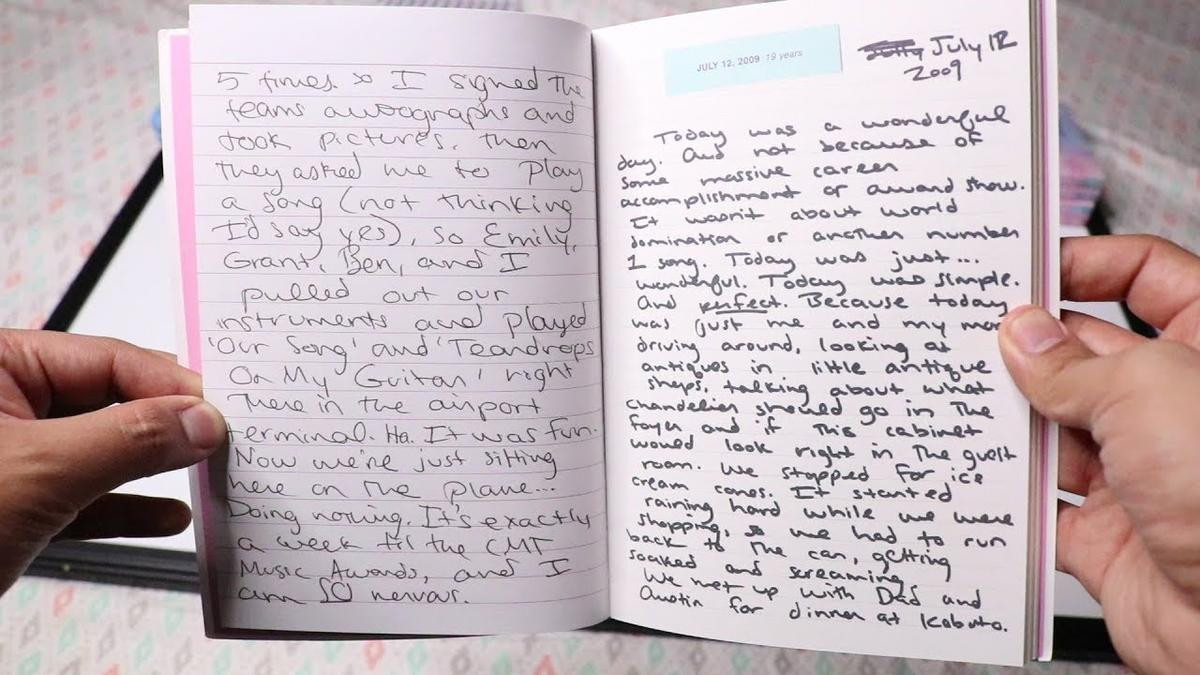 5 times so I signed the
teams autographs and
took pictures. then
they asked me to play
a song (not thinking
I'd say yes), so Emily,
Grant, Ben, and I
pulled out our
instruments and played
'Our Song' and 'Teardrops
On My Guitar' right
there in the airport
terminal. Ha. It was fun.
Now we're just sitting
here on the plane...
Doing nothing. It's exactly
a week til the CMT
Music Awards, and I
am SO nervous.
JULY 12, 2009 19 years
July 12
2009
Today was a wonderful
day. And not because of
some massive career
accomplishment or award show.
It wasn't about world
domination or another number
1 song. Today was just...
wonderful. Today was simple.
And perfect. Because today
was just me and my mom
driving around, looking at
antiques in little antique
shops, talking about what
chandelier should go in the
foyer and if this cabinet
would look right in the guest
room. We stopped for ice
cream cones. It started
raining hard while we were
shopping, so we had to run
back to the car, getting
soaked and screaming.
We met up with Dad and
Austin for dinner at Kabuto.